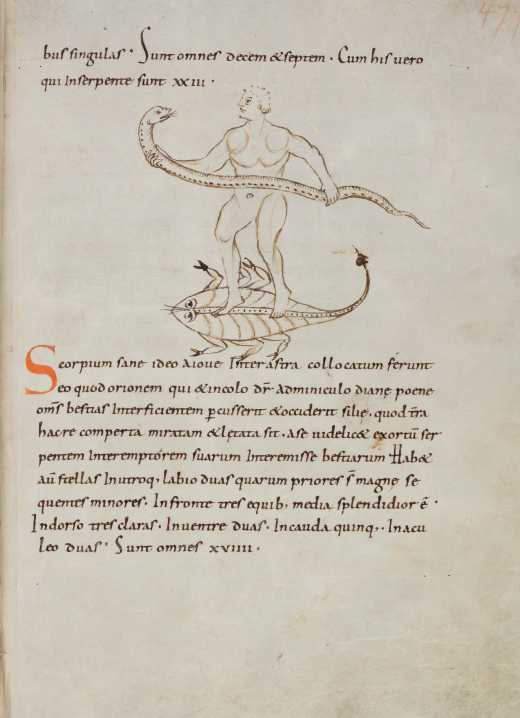 bus singulas · Sunt omnes decem & septem · Cum his vero
qui Inserpente sunt xxiii ·
Scorpium sane ideo aioue Interastra collocatum ferunt
eo quod orionem qui & incolo dr̄ Adminiculo dianę poene
om̄s bestias Interficientem ꝑcusserit & occiderit silię · quod t̄ra
hac re comperta miratam & lętata sit · Ase videlic& exortū ser
pentem Interemptorem suarum Interemisse bestiarum Hab&
aū stellas Inutroq· labio duas quarum priores s̄ magnę se
quentes minores · Infronte tres equib· media splendidior ē ·
Indorso tres claras · Inventre duas · Incauda quinq · · Inacu
leo duas · Sunt omnes xviiii ·